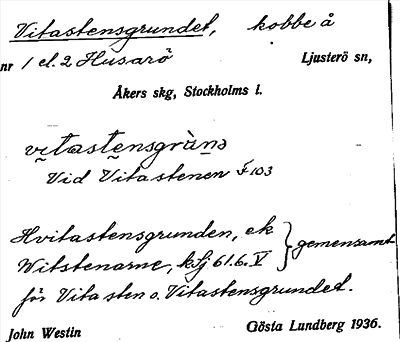 Vitastensgrundet, kobbe å
nr 1 el. 2 Husarö Ljusterö sn,
Åkers skg, Stockholms l.
vi̬tastensgrùn̠d
Vid Vitastenen F 103
Hvitastensgrunden, ek
Witstenarne, kSj 61.6. V } gemensamt
för Vitasten o. Vitastensgrundet.
John Westin Gösta Lundberg 1936.